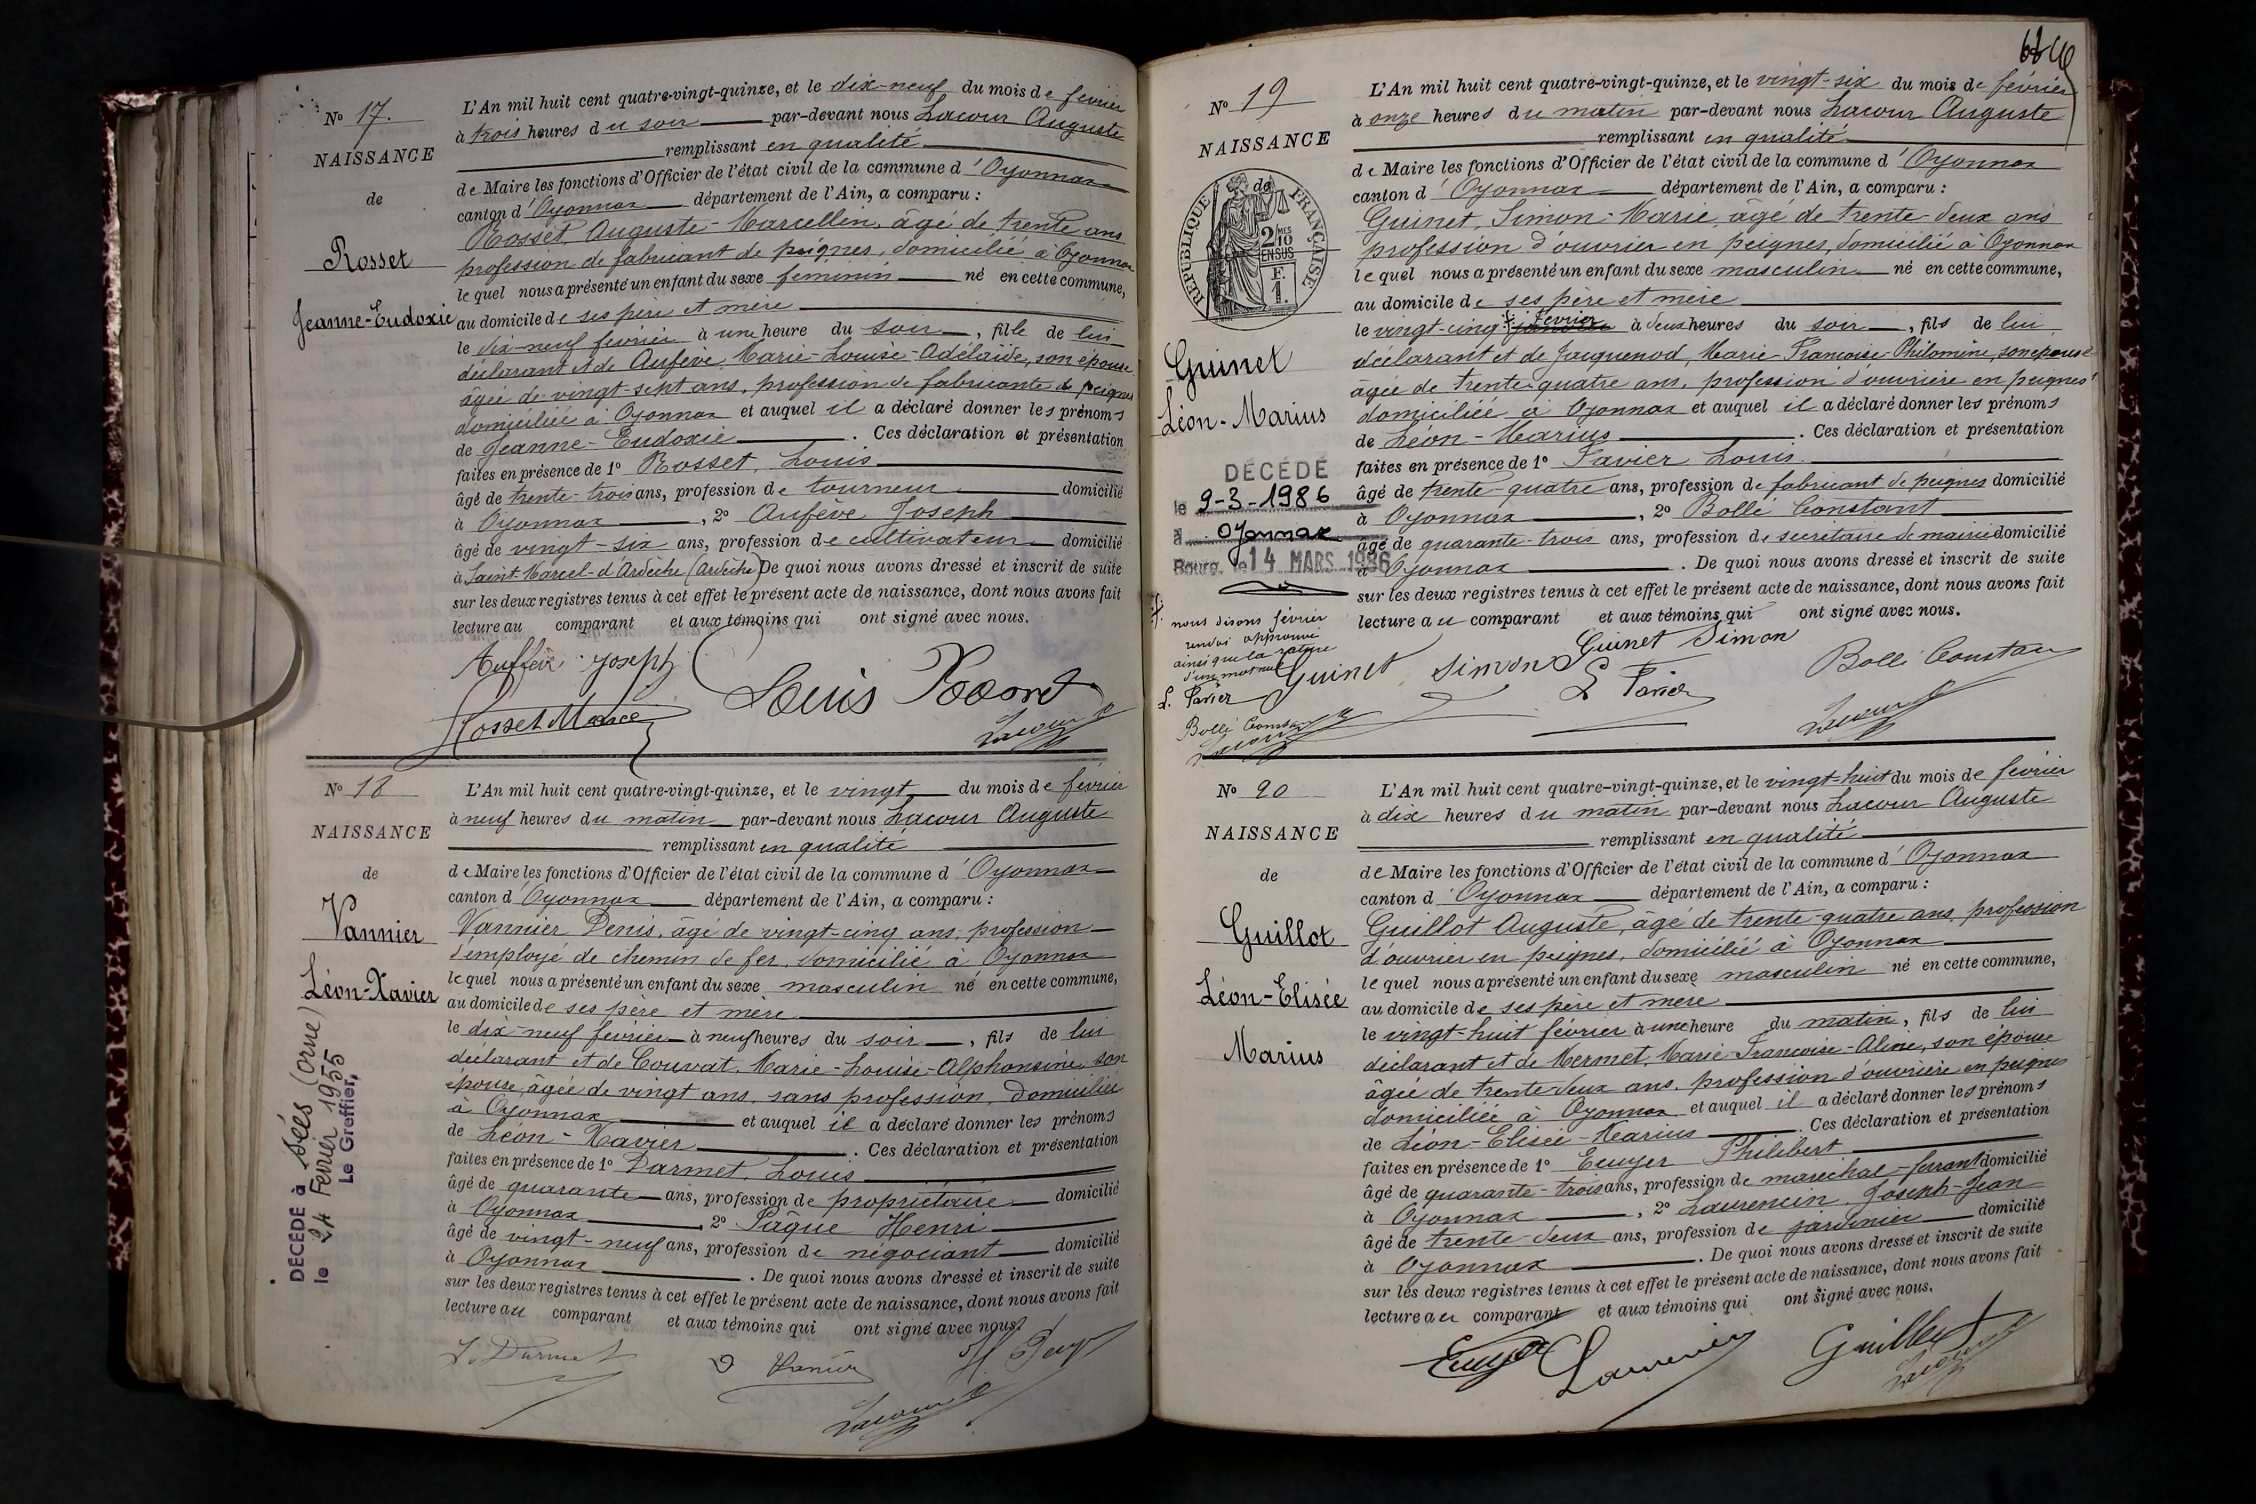 Nº 17.
NAISSANCE
de
Rosset
Jeanne-Eudoxie
L'An mil huit cent quatre-vingt-quinze, et le dix-neuf du mois de février
à trois heures du soir par-devant nous Lacour Auguste
remplissant en qualité
de Maire les fonctions d'Officier de l'état civil de la commune d'Oyonnax
canton d'Oyonnax département de l'Ain, a comparu :
Rosset, Auguste-Marcellin, âgé de trente ans
profession de fabricant de peignes, domicilié à Oyonnax
lequel nous a présenté un enfant du sexe féminin né en cette commune,
au domicile de ses père et mère
le dix-neuf février à une heure du soir, fille de lui
déclarant et de Aufève, Marie-Louise-Adélaïde, son épouse
âgée de vingt-sept ans, profession de fabricante de peignes
domiciliée à Oyonnax et auquel il a déclaré donner les prénoms
de Jeanne-Eudoxie. Ces déclaration et présentation
faites en présence de 1º Rosset, Louis
âgé de trente-trois ans, profession de tourneur domicilié
à Oyonnax, 2º Aufève Joseph
âgé de vingt-six ans, profession de cultivateur domicilié
à Saint-Marcel-d'Ardèche (Ardèche) De quoi nous avons dressé et inscrit de suite
sur les deux registres tenus à cet effet le présent acte de naissance, dont nous avons fait
lecture au comparant et aux témoins qui ont signé avec nous.
Joseph
Louis Rosset
Rosset Marce
Lacour
Nº 18
NAISSANCE
de
Vannier
Léon-Xavier
DÉCÉDÉ à Sées (Orne)
le 24 Février 1955
Le Greffier,
L'An mil huit cent quatre-vingt-quinze, et le vingt du mois de février
à neuf heures du matin par-devant nous Lacour Auguste
remplissant en qualité
de Maire les fonctions d'Officier de l'état civil de la commune d'Oyonnax
canton d'Oyonnax département de l'Ain, a comparu :
Vannier Denis, âgé de vingt-cinq ans, profession
d'employé de chemin de fer, domicilié à Oyonnax
lequel nous a présenté un enfant du sexe masculin né en cette commune,
au domicile de ses père et mère
le dix-neuf février à neuf heures du soir, fils de lui
déclarant et de Couvat, Marie-Louise-Alphonsine, son
épouse, âgée de vingt ans, sans profession, domiciliée
à Oyonnax et auquel il a déclaré donner les prénoms
de Léon-Xavier. Ces déclaration et présentation
faites en présence de 1º Darmet, Louis
âgé de quarante ans, profession de propriétaire domicilié
à Oyonnax, 2º Pâque Henri
âgé de vingt-neuf ans, profession de négociant domicilié
à Oyonnax. De quoi nous avons dressé et inscrit de suite
sur les deux registres tenus à cet effet le présent acte de naissance, dont nous avons fait
lecture au comparant et aux témoins qui ont signé avec nous.
L. Darmet
D Vannier
Lacour
Nº 19
NAISSANCE
de
RÉPUBLIQUE FRANÇAISE
2 MES
10
EN SUS
1 F.
Guinet
Léon-Marius
DÉCÉDÉ
le 9-3-1986
à Oyonnax
Bourg, le 14 MARS 1986
nous disons février
renvoi approuvé
ainsi que la rature
d'un mot nul
L. Pavier
Bollé Constant
Lacour
L'An mil huit cent quatre-vingt-quinze, et le vingt-six du mois de février
à onze heures du matin par-devant nous Lacour Auguste
remplissant en qualité
de Maire les fonctions d'Officier de l'état civil de la commune d'Oyonnax
canton d'Oyonnax département de l'Ain, a comparu :
Guinet, Simon-Marie, âgé de trente-deux ans
profession d'ouvrier en peignes, domicilié à Oyonnax
lequel nous a présenté un enfant du sexe masculin né en cette commune,
au domicile de ses père et mère
le vingt-cinq février à deux heures du soir, fils de lui
déclarant et de Jacquenod, Marie-Françoise-Philomène, son épouse
âgée de trente-quatre ans, profession d'ouvrière en peignes
domiciliée à Oyonnax et auquel il a déclaré donner les prénoms
de Léon-Marius. Ces déclaration et présentation
faites en présence de 1º Pavier Louis
âgé de trente-quatre ans, profession de fabricant de peignes domicilié
à Oyonnax, 2º Bollé Constant
âgé de quarante-trois ans, profession de secrétaire de mairie domicilié
à Oyonnax. De quoi nous avons dressé et inscrit de suite
sur les deux registres tenus à cet effet le présent acte de naissance, dont nous avons fait
lecture au comparant et aux témoins qui ont signé avec nous.
Guinet Simon
Guinet Simon
L Pavier
Bollé Constant
Lacour
Nº 20
NAISSANCE
de
Guillot
Léon-Elisée
Marius
L'An mil huit cent quatre-vingt-quinze, et le vingt-huit du mois de février
à dix heures du matin par-devant nous Lacour Auguste
remplissant en qualité
de Maire les fonctions d'Officier de l'état civil de la commune d'Oyonnax
canton d'Oyonnax département de l'Ain, a comparu :
Guillot Auguste, âgé de trente-quatre ans, profession
d'ouvrier en peignes, domicilié à Oyonnax
lequel nous a présenté un enfant du sexe masculin né en cette commune,
au domicile de ses père et mère
le vingt-huit février à une heure du matin, fils de lui
déclarant et de Mermet, Marie-Françoise-Aline, son épouse
âgée de trente-deux ans, profession d'ouvrière en peignes
domiciliée à Oyonnax et auquel il a déclaré donner les prénoms
de Léon-Elisée-Marius. Ces déclaration et présentation
faites en présence de 1º Ecuyer Philibert
âgé de quarante-trois ans, profession de maréchal-ferrant domicilié
à Oyonnax, 2º Laurencin, Joseph-Jean
âgé de trente-deux ans, profession de jardinier domicilié
à Oyonnax. De quoi nous avons dressé et inscrit de suite
sur les deux registres tenus à cet effet le présent acte de naissance, dont nous avons fait
lecture au comparant et aux témoins qui ont signé avec nous.
Ecuyer
Laurencin
Guillot
Lacour